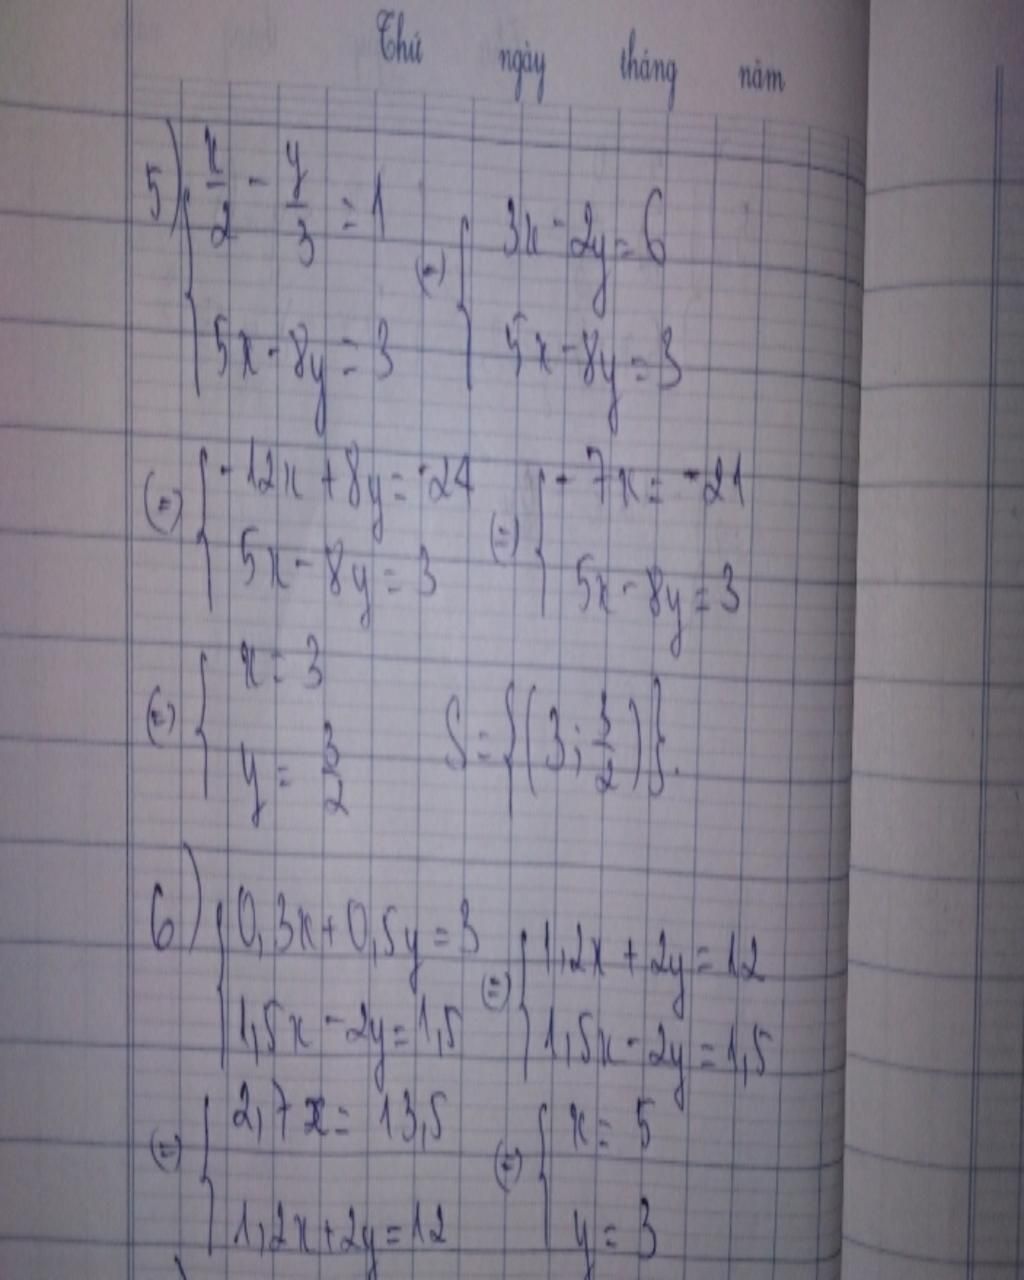 Thứ ngày tháng năm
5) { x/2 - y/3 = 1 (=) { 3x - 2y = 6
5x - 8y = 3 5x - 8y = 3
(=) { -12x + 8y = -24 (=) { -7x = -21
5x - 8y = 3 5x - 8y = 3
(=) { x = 3
y = 3/2 S = {(3; 3/2)}.
6) { 0,3x + 0,5y = 3 (=) { 1,2x + 2y = 12
1,5x - 2y = 1,5 1,5x - 2y = 1,5
(=) { 2,7x = 13,5 (=) { x = 5
1,2x + 2y = 12 y = 3